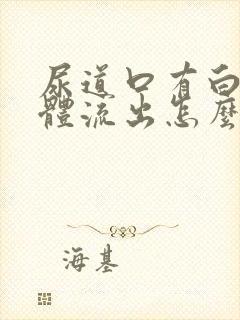 尿道口有白
體流出怎麼
海基